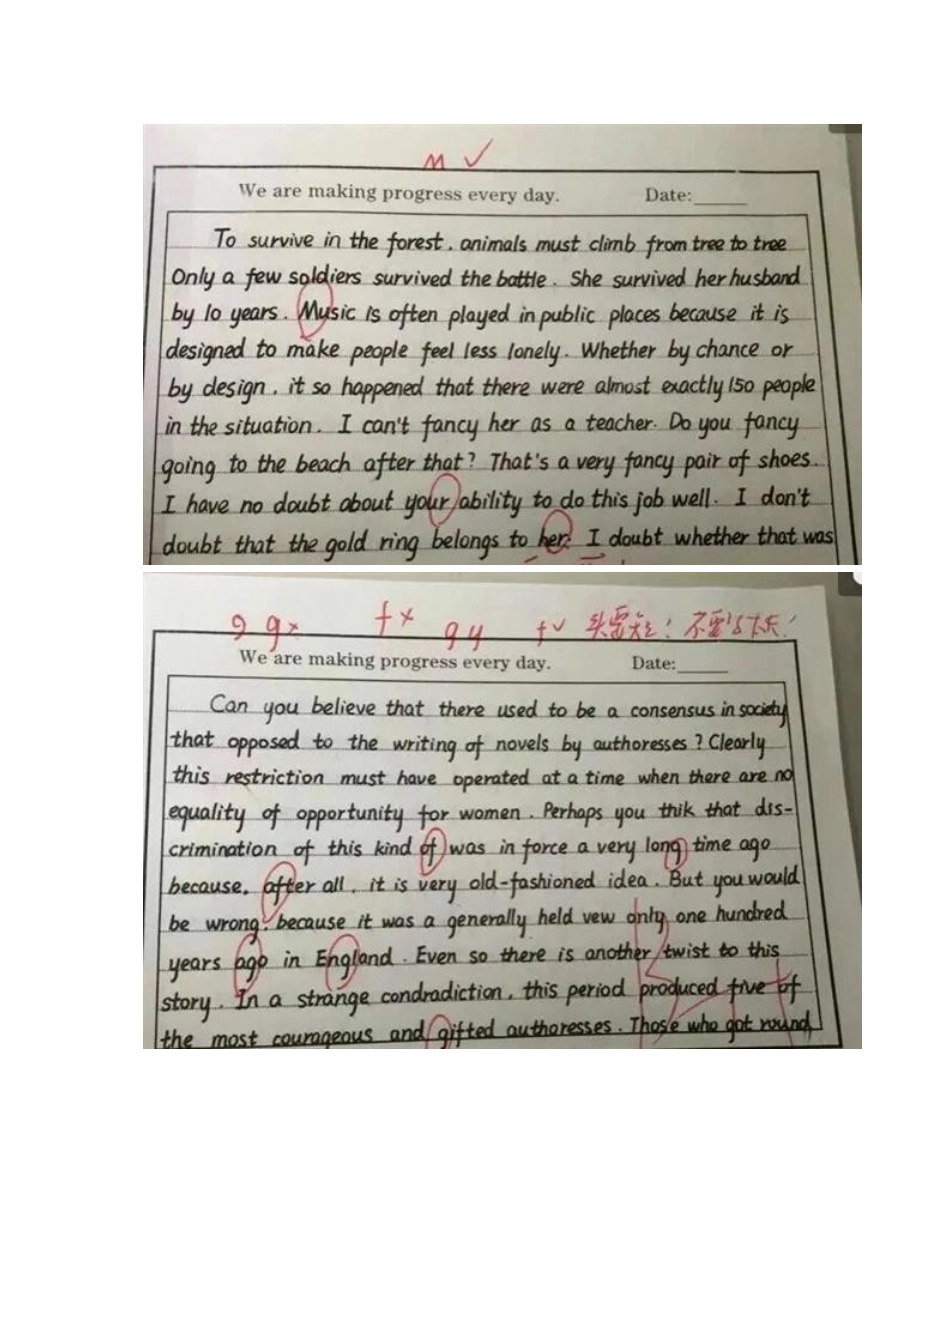 M ✓
We are making progress every day. Date:
To survive in the forest, animals must climb from tree to tree
Only a few soldiers survived the battle. She survived her husband
by 10 years. Music is often played in public places because it is
designed to make people feel less lonely. Whether by chance or
by design, it so happened that there were almost exactly 150 people
in the situation. I can't fancy her as a teacher. Do you fancy
going to the beach after that? That's a very fancy pair of shoes.
I have no doubt about your ability to do this job well. I don't
doubt that the gold ring belongs to her. I doubt whether that was
9 g× f× g y f✓ 头要短!不要
We are making progress every day. Date:
Can you believe that there used to be a consensus in society
that opposed to the writing of novels by authoresses? Clearly
this restriction must have operated at a time when there are no
equality of opportunity for women. Perhaps you thik that dis-
crimination of this kind of was in force a very long time ago
because, after all, it is very old-fashioned idea. But you would
be wrong, because it was a generally held vew only one hundred
years ago in England. Even so there is another twist to this
story. In a strange condradiction, this period produced five of
the most courageous and gifted authoresses. Those who got round